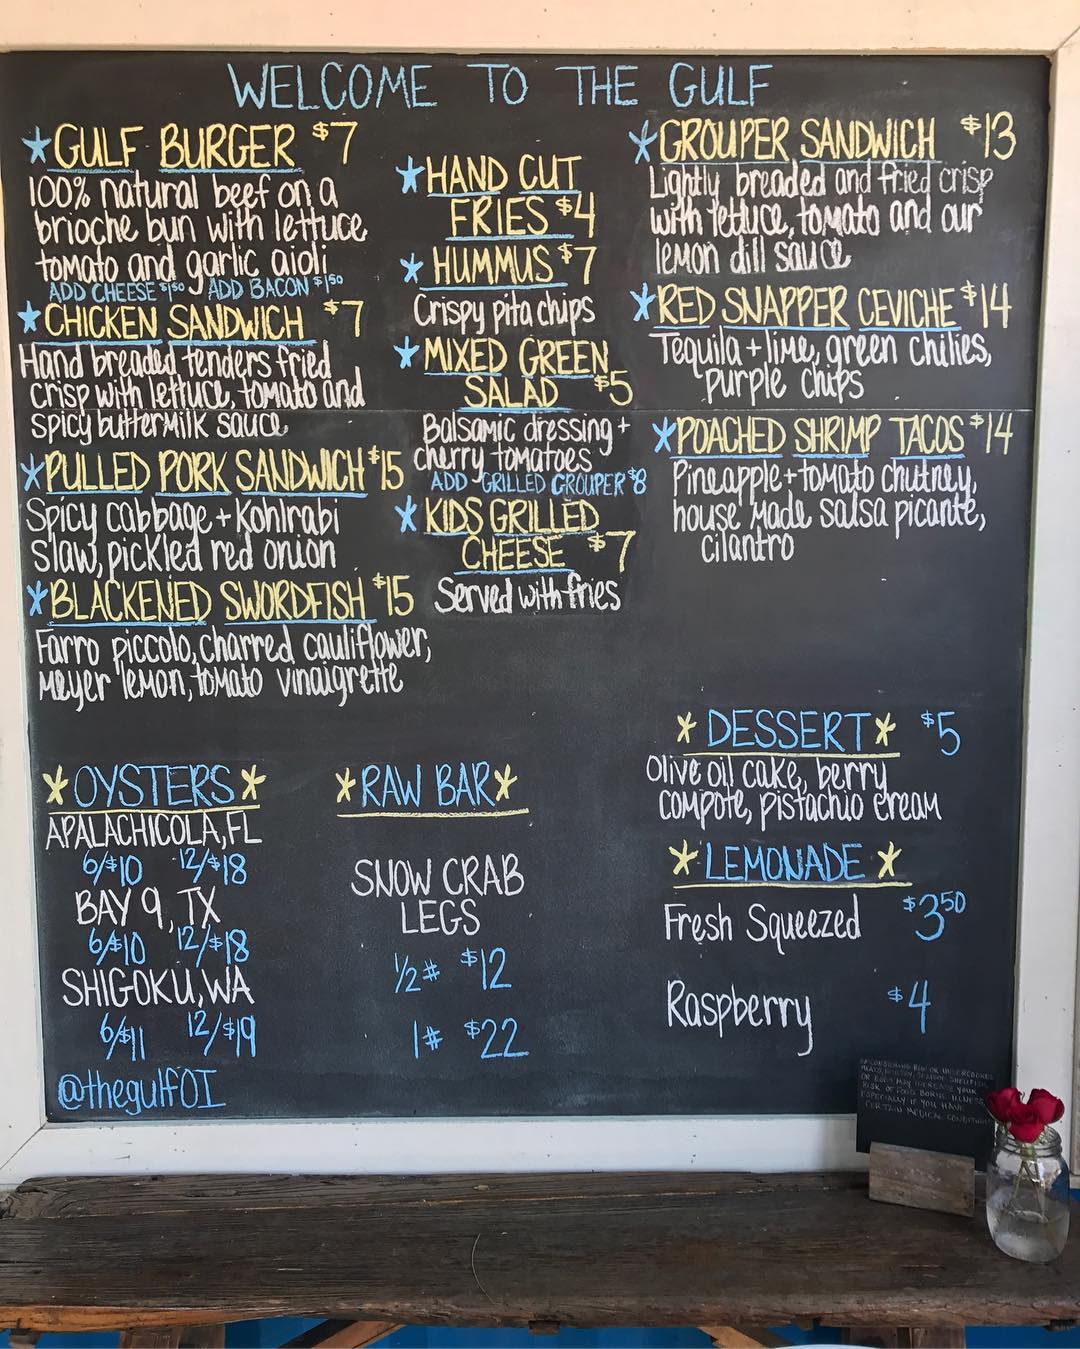 WELCOME TO THE GULF
*GULF BURGER $7
100% natural beef on a
brioche bun with lettuce,
tomato and garlic aioli
ADD CHEESE $1.50 ADD BACON $1.50
*CHICKEN SANDWICH $7
Hand breaded tenders fried
crisp with lettuce, tomato and
spicy buttermilk sauce
*PULLED PORK SANDWICH $15
Spicy cabbage + Kohlrabi
slaw, pickled red onion
*BLACKENED SWORDFISH $15
Farro piccolo, charred cauliflower,
Meyer lemon, tomato vinaigrette
*HAND CUT
FRIES $4
*HUMMUS $7
Crispy pita chips
*MIXED GREEN
SALAD $5
Balsamic dressing +
cherry tomatoes
ADD GRILLED GROUPER $8
*KIDS GRILLED
CHEESE $7
Served with fries
*GROUPER SANDWICH $13
Lightly breaded and fried crisp
with lettuce, tomato and our
lemon dill sauce
*RED SNAPPER CEVICHE $14
Tequila + lime, green chilies,
purple chips
*POACHED SHRIMP TACOS $14
Pineapple + tomato chutney,
house made salsa picante,
cilantro
*OYSTERS*
APALACHICOLA, FL
6/$10 12/$18
BAY 9, TX
6/$10 12/$18
SHIGOKU, WA
6/$11 12/$19
@thegulfOI
*RAW BAR*
SNOW CRAB
LEGS
1/2# $12
1# $22
*DESSERT* $5
Olive oil cake, berry
compote, pistachio cream
*LEMONADE*
Fresh Squeezed $3.50
Raspberry $4
*CONSUMING RAW OR UNDERCOOKED
MEATS, POULTRY, SEAFOOD, SHELLFISH,
OR EGGS MAY INCREASE YOUR
RISK OF FOOD BORNE ILLNESS
ESPECIALLY IF YOU HAVE
CERTAIN MEDICAL CONDITIONS